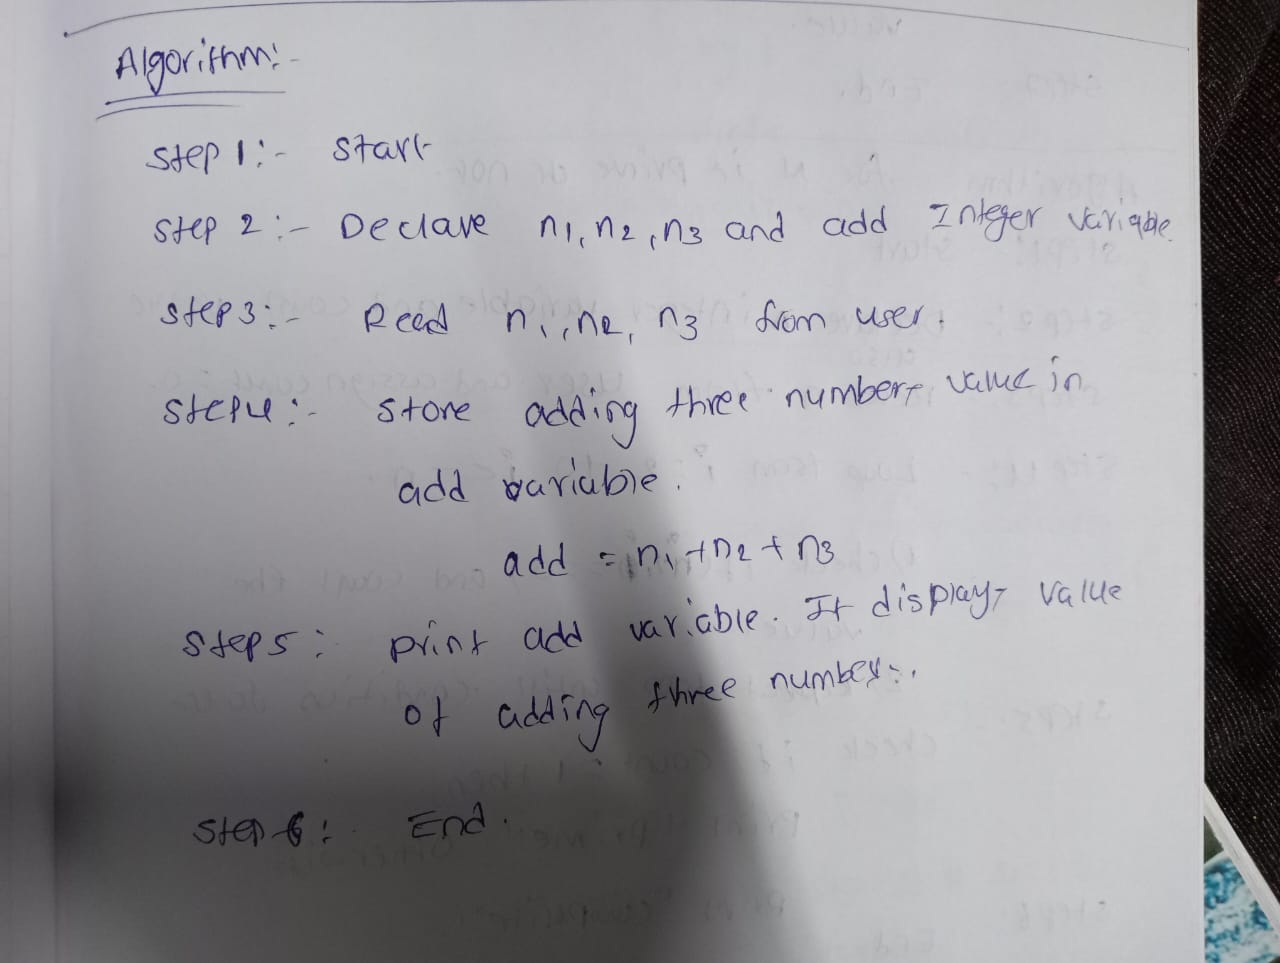 Algorithm:-
Step 1:- Start
Step 2:- Declare n1, n2, n3 and add Integer variable.
Step 3:- Read n1, n2, n3 from user.
Step 4:- Store adding three numbers value in
add variable.
add = n1 + n2 + n3
Step 5: print add variable. It displays value
of adding three numbers.
Step 6: End.